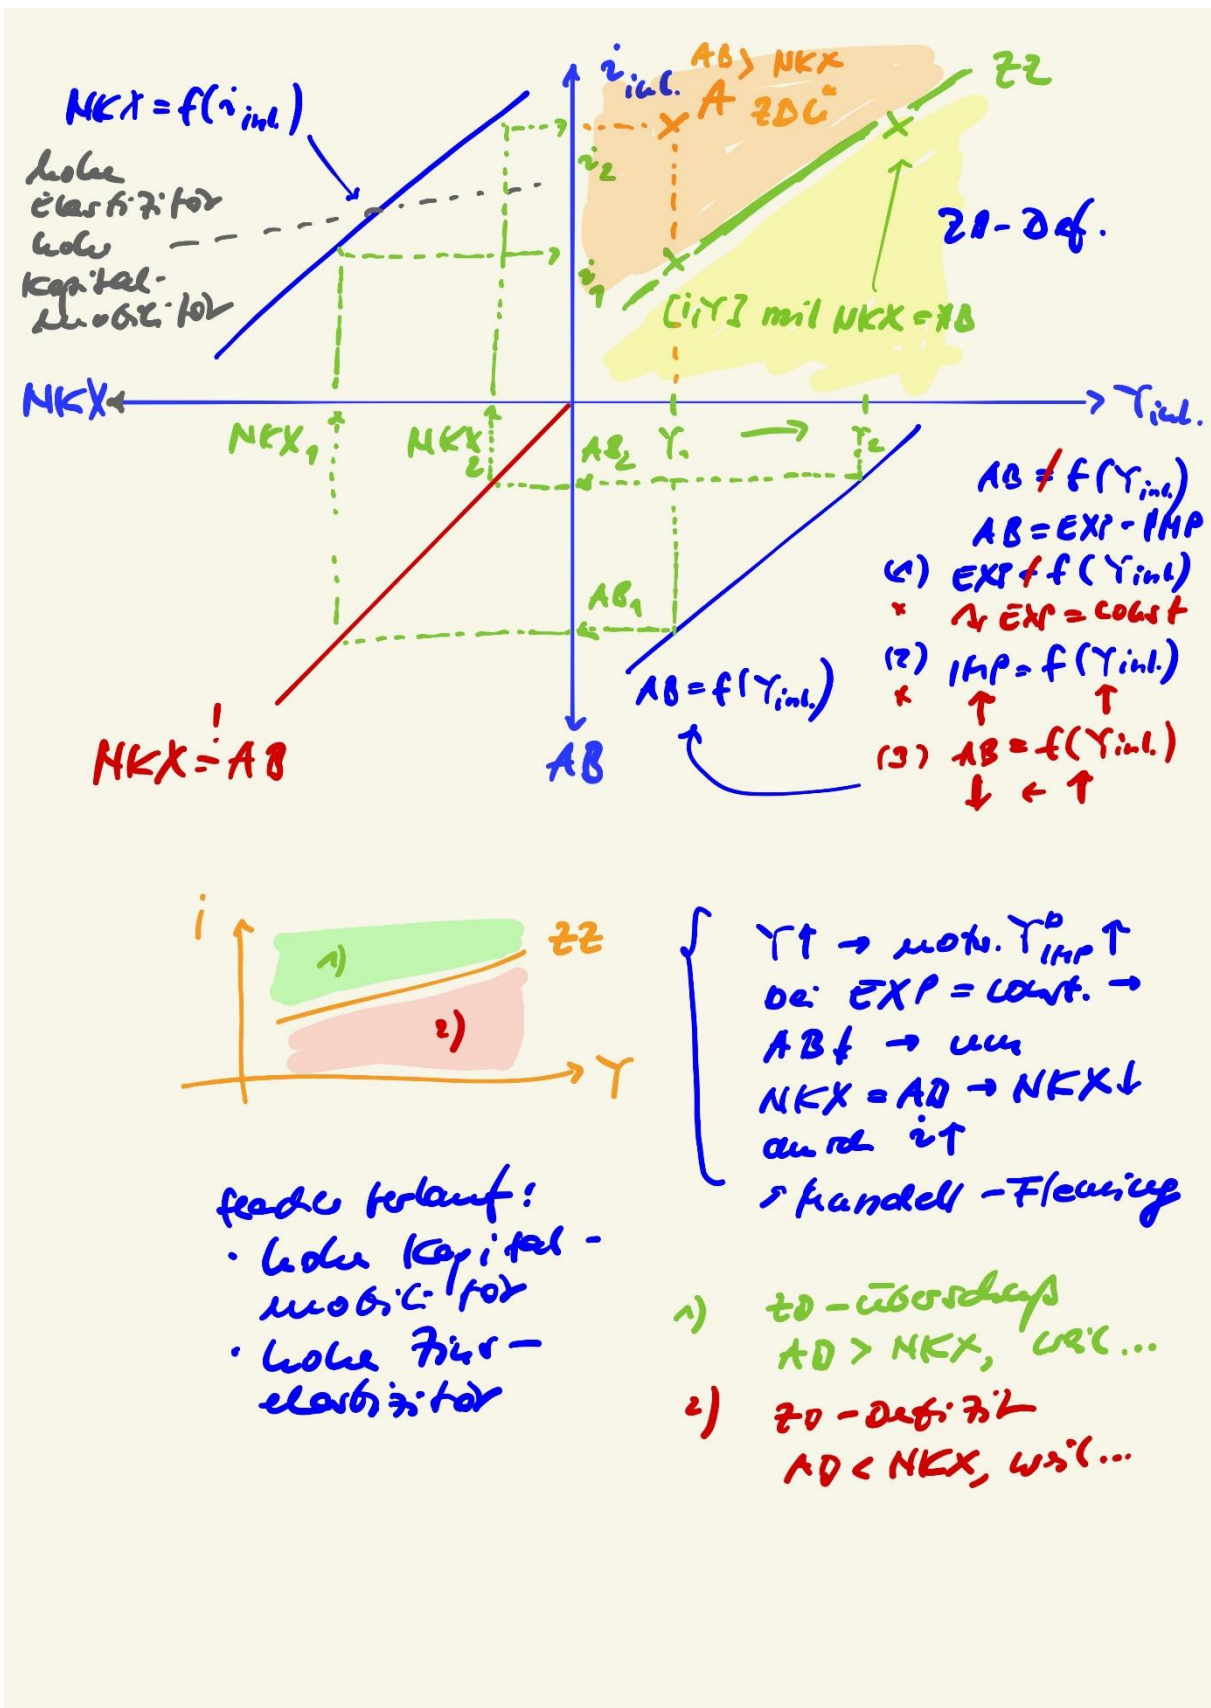 AB > NKX
ZZ
i inl.
A ZBÜ
NKX = f(i inl.)
hohe
Elastizität
hohe
Kapital-
mobilität
i2
ZB-Def.
i1
[i,Y] mit NKX = AB
NKX
Y inl.
NKX1
NKX2
AB2
Y1
Y2
AB ≠ f(Y inl.)
AB = EXP - IMP
(1) EXP ≠ f(Y inl)
* ↳ EXP = const
AB1
(2) IMP = f(Y inl.)
* ↑ ↑
AB = f(Y inl.)
NKX =! AB
AB
(3) AB = f(Y inl.)
↓ ← ↑
i
ZZ
1)
2)
Y
Y↑ → notw. Y D IMP ↑
bei EXP = const. →
AB↓ → um
NKX = AB → NKX↓
durch i↑
↗ Mundell - Fleming
flacher Verlauf:
• hohe Kapital-
mobilität
• hohe Zins-
elastizität
1) ZB-Überschuß
AB > NKX, weil...
2) ZB-Defizit
AB < NKX, weil...